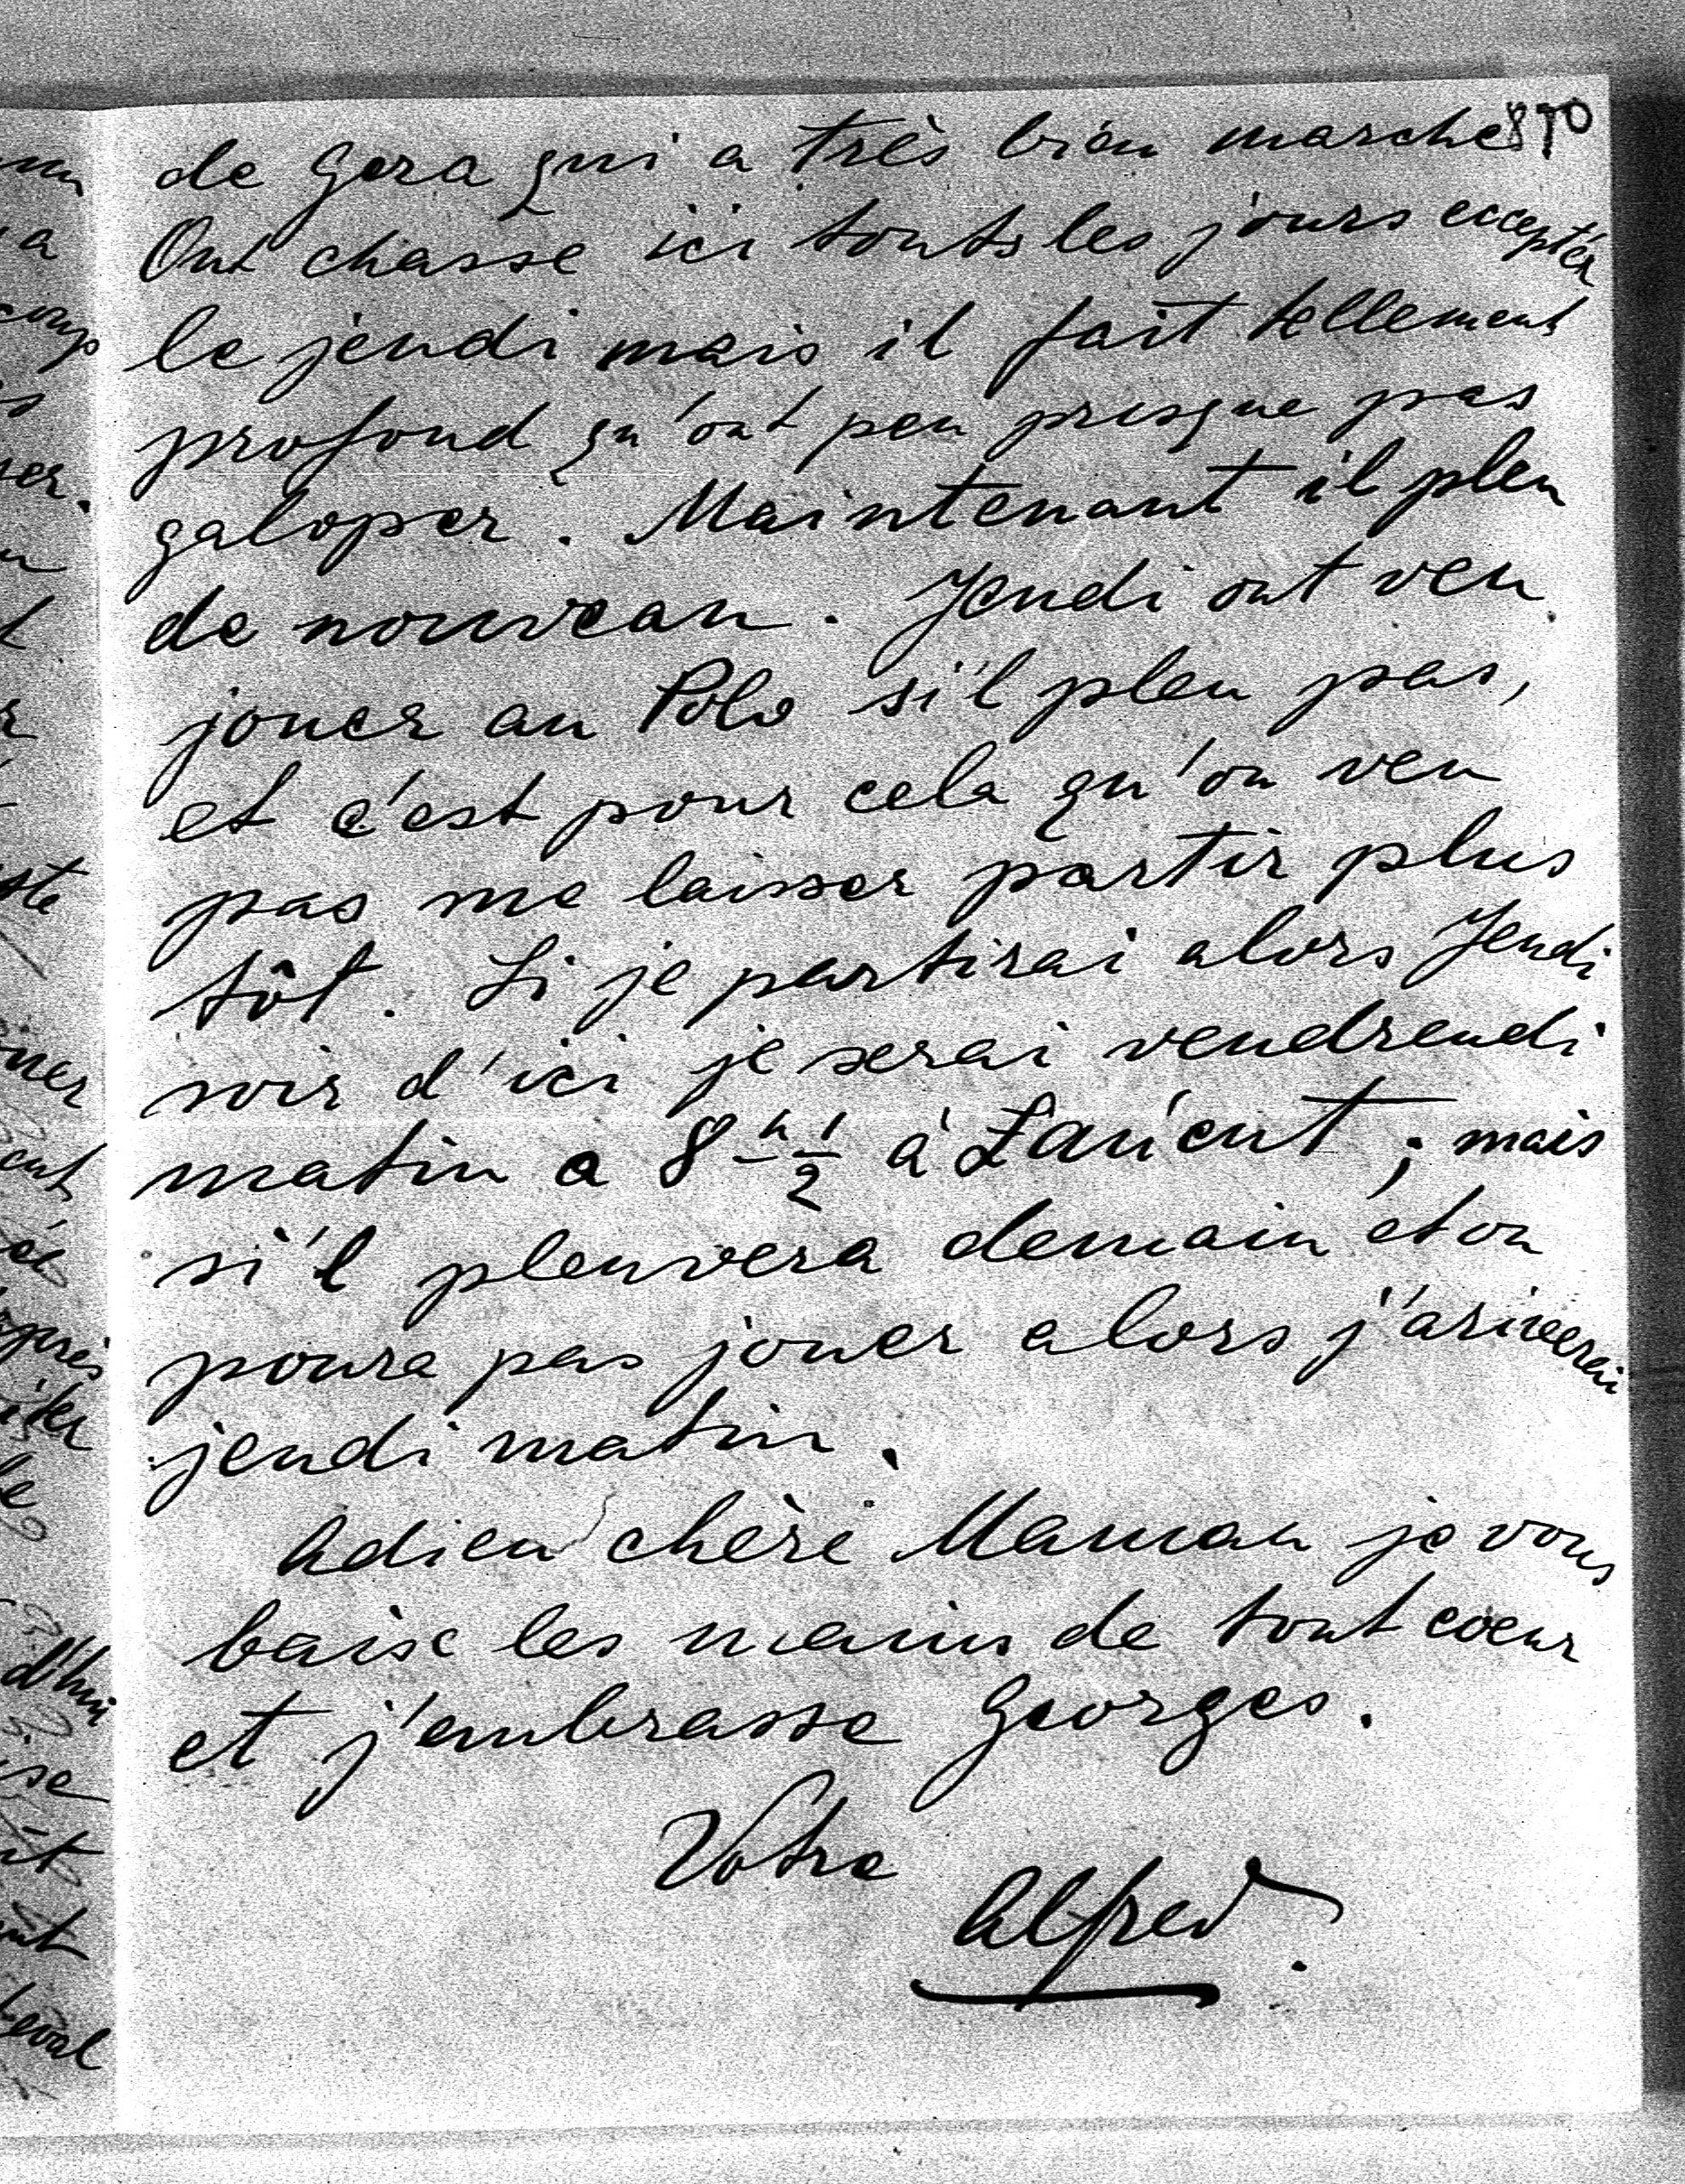 870
de Gera qui a très bien marché
Ont chasse ici touts les jours excepter
le jeudi mais il fait tellement
profond qu'ont peu presque pas
galoper. Maintenant il pleu
de nouveau. Jeudi ont veu
jouer au Polo si'l pleu pas,
et c'est pour cela qu'on veu
pas me laisser partir plus
tôt. Si je partirai alors Jeudi
soir d'ici je serai vendrendi
matin a 8 h 1/2 à Łańcut; mais
si'l pleuvera demain et on
poura pas jouer alors j'ariverai
jeudi matin.
Adieu chère Maman je vous
baise les mains de tout coeur
et j'embrasse Georges.
Votre
Alfred.